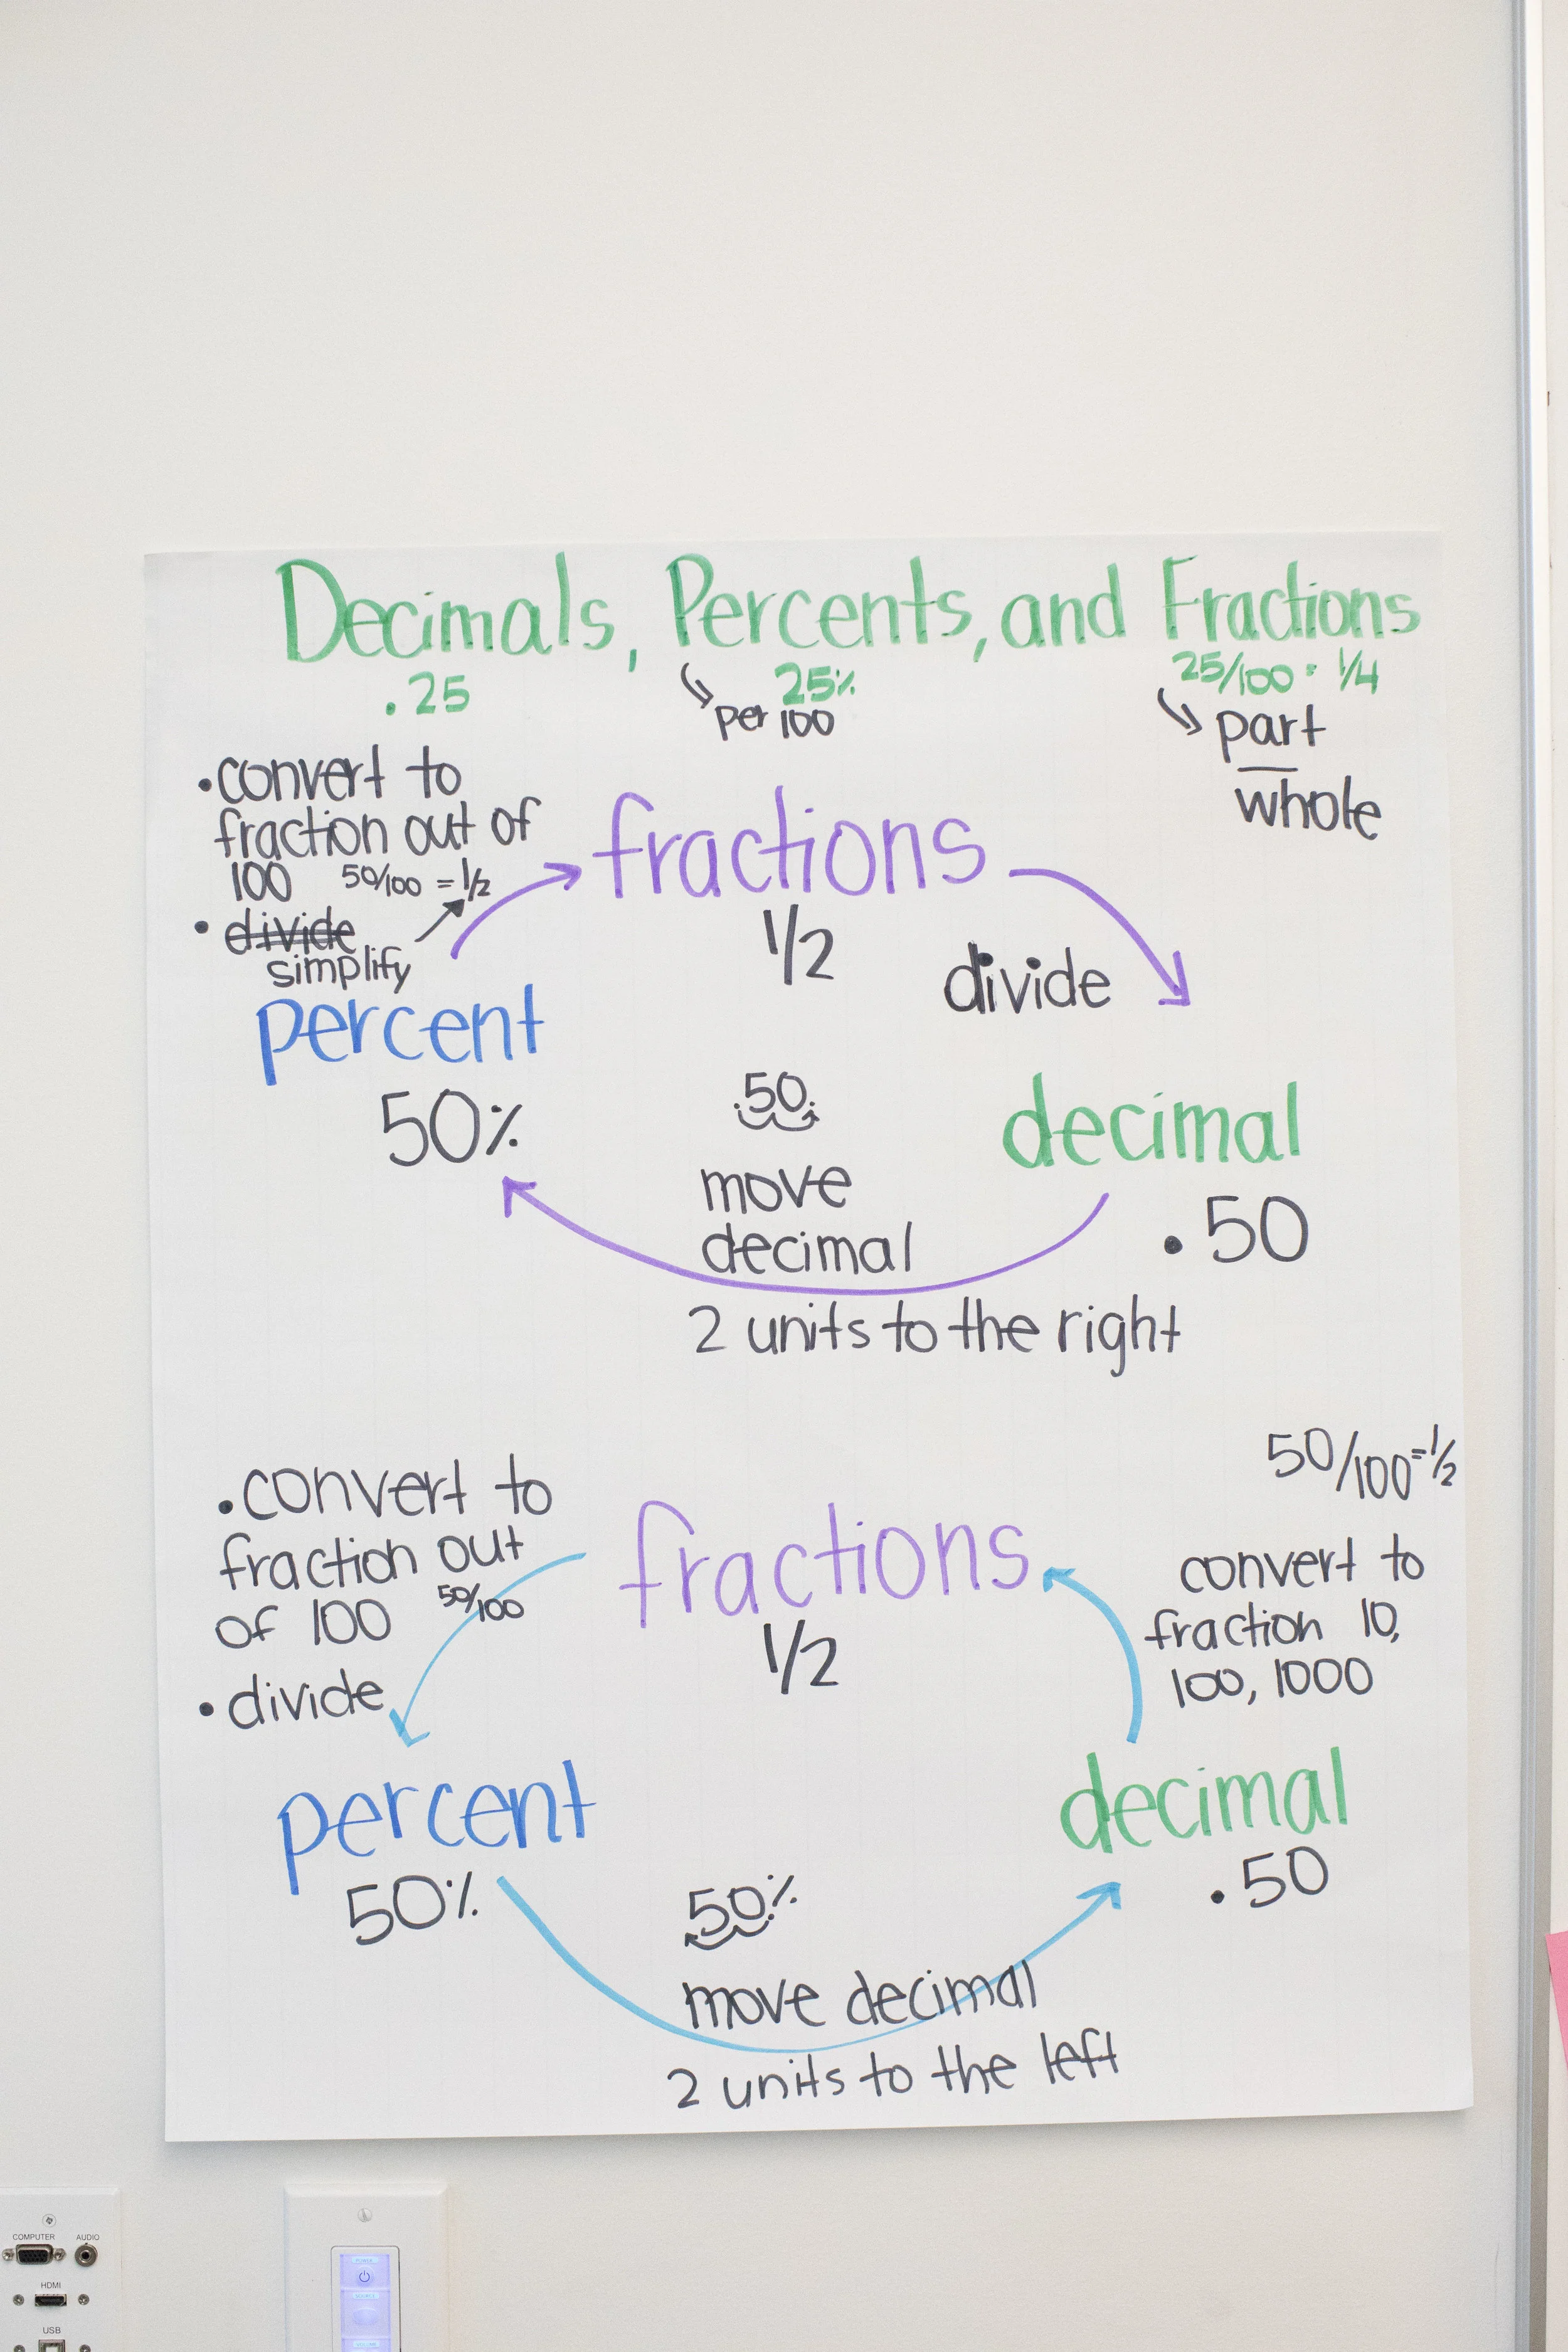 Decimals, Percents, and Fractions
.25
25%
25/100 = 1/4
per 100
part
whole
• convert to
fraction out of
100 50/100 = 1/2
• divide
simplify
fractions
1/2
divide
percent
50%
.50.
move
decimal
2 units to the right
decimal
.50
• convert to
fraction out
of 100 50/100
• divide
fractions
1/2
50/100 = 1/2
convert to
fraction 10,
100, 1000
percent
50%
50.%
move decimal
2 units to the left
decimal
.50
COMPUTER AUDIO
HDMI
USB